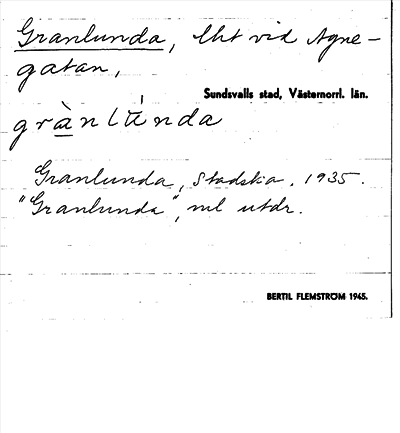 Granlunda, lht vid Agne-
gatan,
Sundsvalls stad, Västernorrl. län.
grànlúnda
Granlunda, Stadska. 1935.
"Granlunda", ml utdr.
BERTIL FLEMSTRÖM 1945.